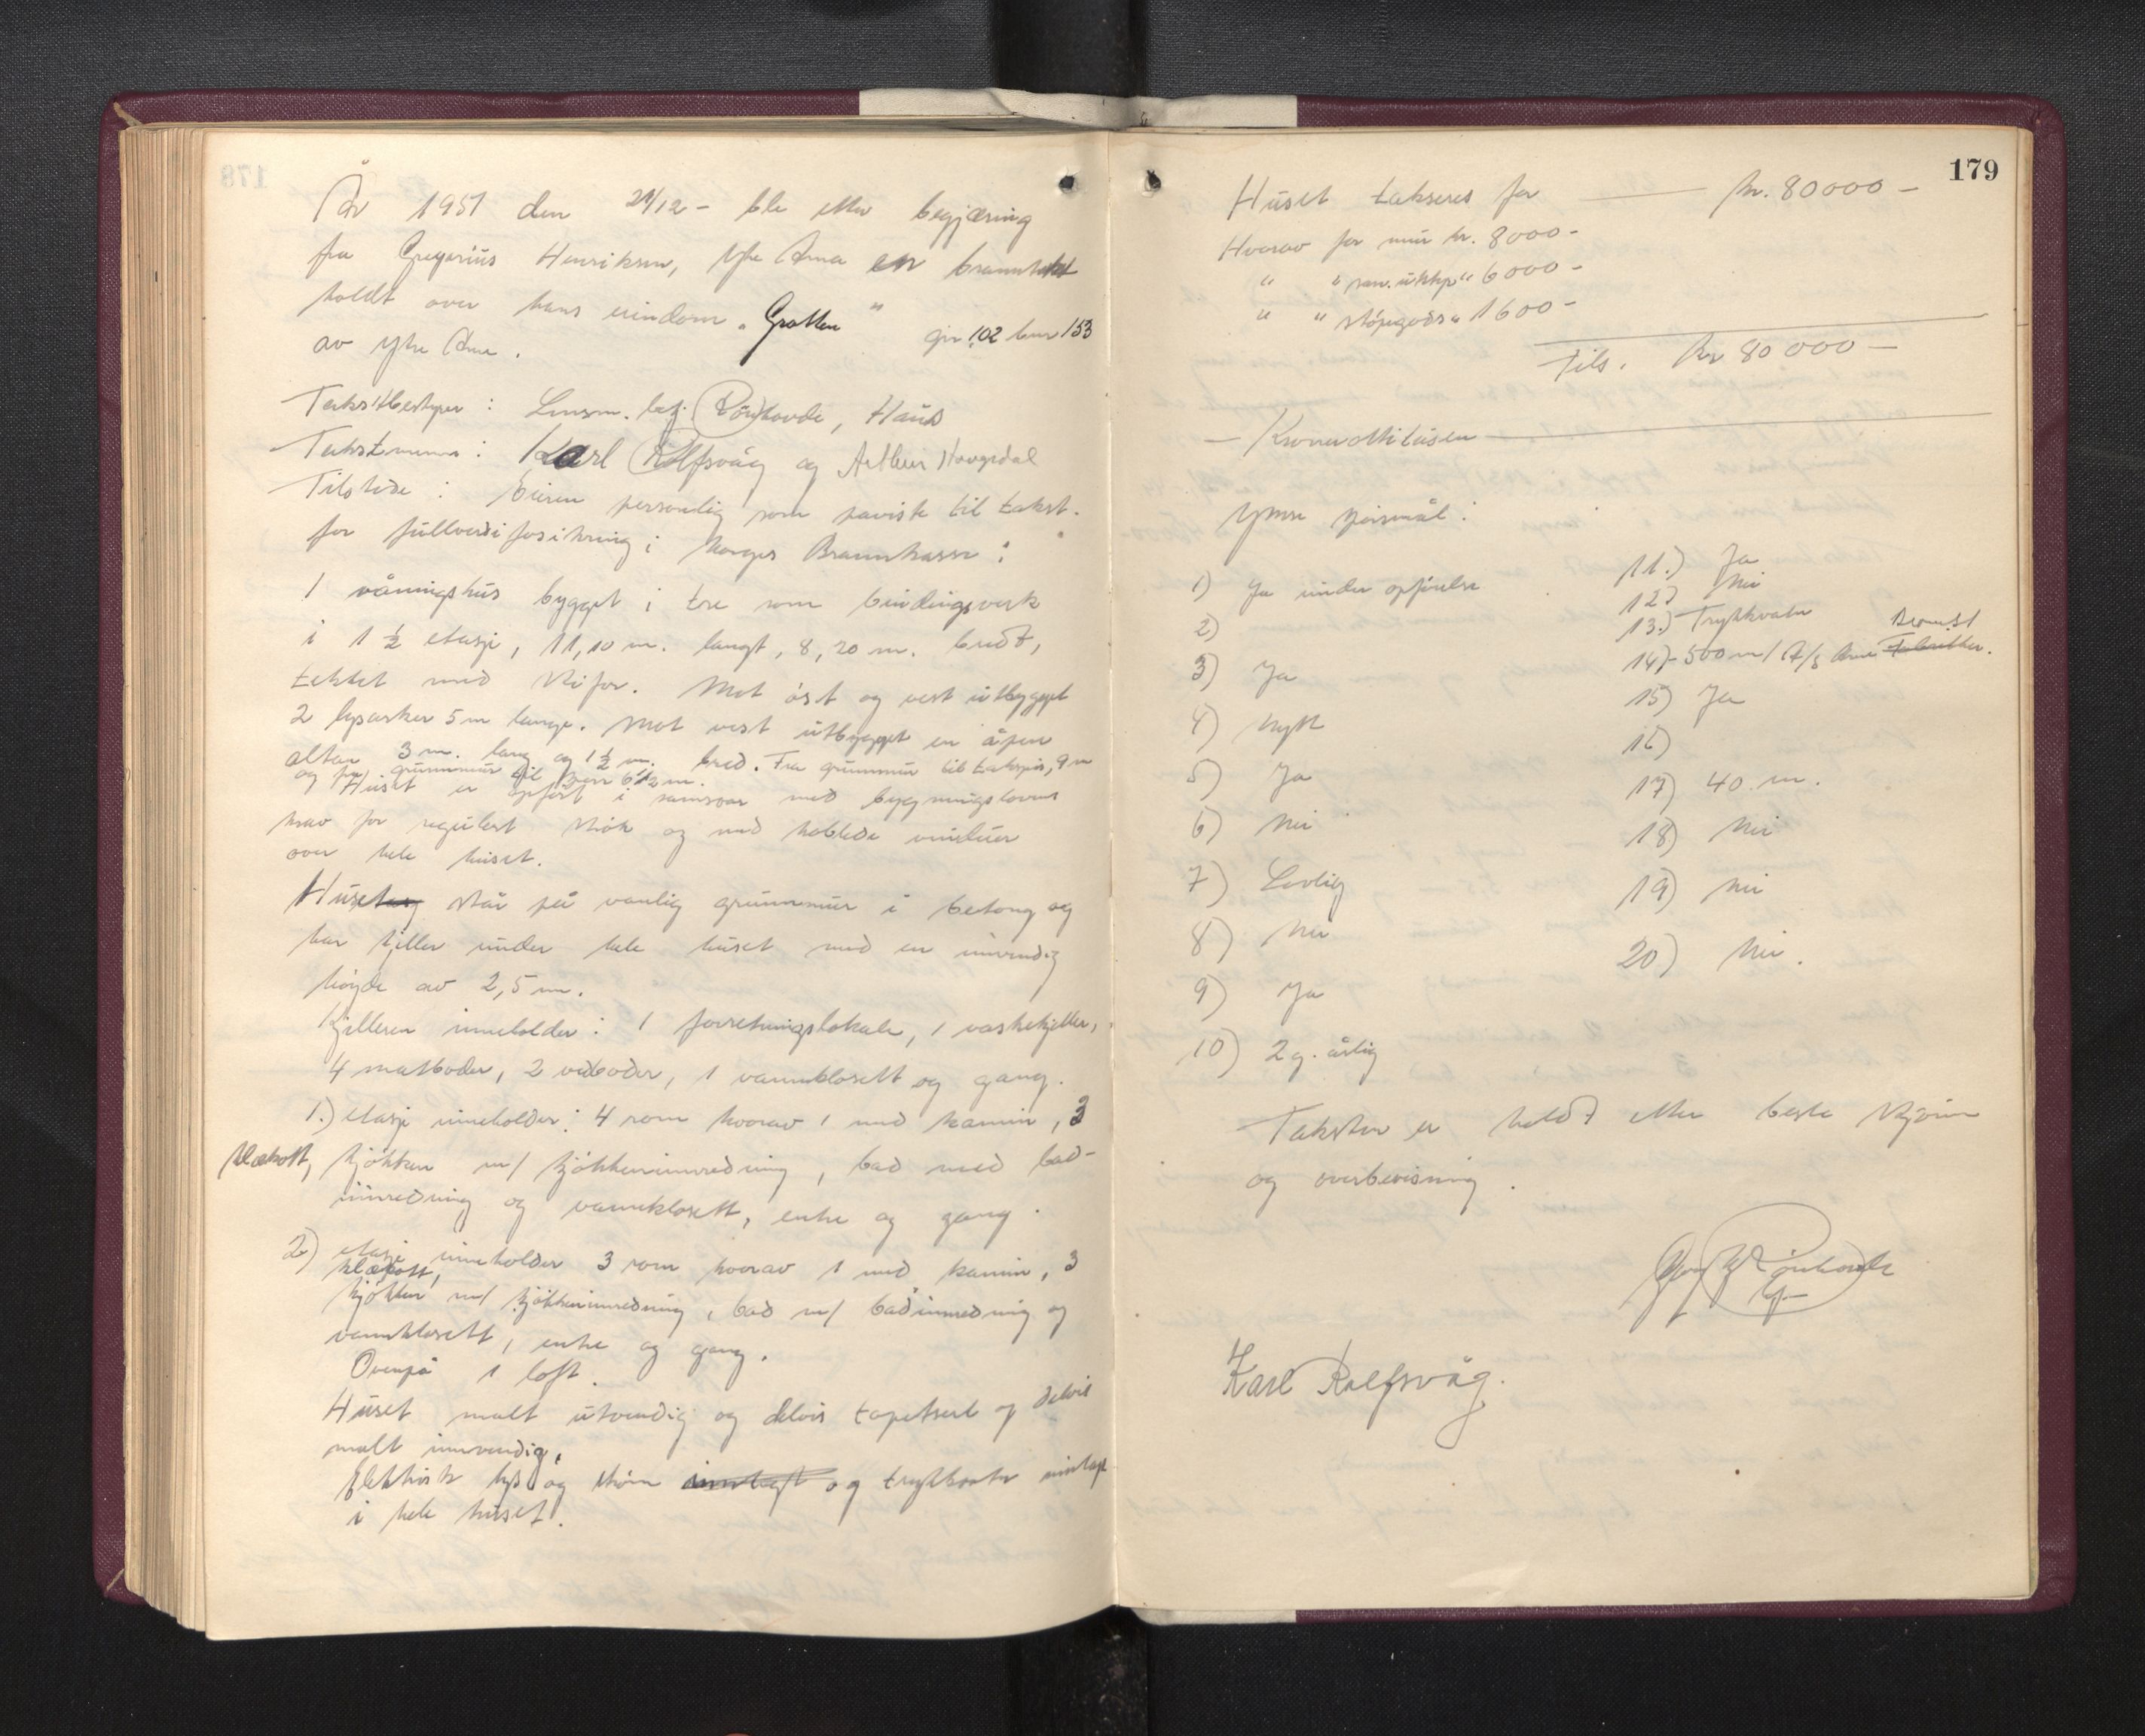 År 1951 den 21/12 – ble etter begjæring
fra Gregorius Henriksen, Ytre Arna en branntakst
holdt over hans eiendom „Grotten" gnr 102 bnr 153
av ytre Arna.
Takstbestyrer: Lensm. betj. Rörhovde, Haus
Takstmenn: Karl Rolfsvåg og Arthur Haugsdal
Tilstede: Eieren personlig som påviste til takst.
for fullverdiforsikring i Norges Brannkasse:
1 våningshus bygget i tre som bindingsverk
i 1 ½ etasje, 11,10 m. langt, 8,20 m. bredt,
tekket med skifer. Mot öst og vest utbygget
2 lysarker 5 m lange. Mot vest utbygget en åpen
altan 3 m. lang og 1 ½ m. bred. Fra grunnmur til takspir, 9 m
og fra grunnmur til 6 ½ m.
Huset er opfört i samsvar med bygningslovens
krav for regulert strök og med koblede vinduer
over hele huset.
Huset står på vanlig grunnmur i betong og
har kjeller under hele huset med en innvendig
höyde av 2,5 m.
Kjelleren inneholder: 1 forretningslokale, 1 vaskekjeller,
4 matboder, 2 vedboder, 1 vannklosett og gang.
1.) etasje inneholder: 4 rom hvorav 1 med kamin, 3
klækott, kjökken m/ kjökkeninnredning, bad med bad-
innredning og vannklosett, entre og gang.
2) etasje inneholder 3 rom hvorav 1 med kamin, 3
klækott,
kjökken m/ kjökkeninnredning, bad m/ badinnredning og
vannklosett, entre og gang.
Ovenpå 1 loft.
Huset malt utvendig og delvis tapetsert og delvis
malt innvendig.
Elektrisk lys og ström innlagt og trykkvatn innlagt
i hele huset.
179
Huset takseres for kr. 80000 –
Hvorav for mur kr. 8000 –
" " san. utstyr " 6000 –
" " stöpegods " 1600 –
Tils. kr 80 000 –
– Kroner åttitusen –
Ymse spörsmål:
1) Ja under opförelse
2)
3) Ja
4) Nytt
5) Ja
6) Nei
7) Lovlig
8) Nei
9) Ja
10) 2 g. årlig
11.) Ja
12) Nei
13.) Trykkvatn
14) 500 m/ A/S Arne Fabrikker.
15) Ja
16)
17) 40. m.
18) Nei
19) Nei
20) Nei.
Taksten er holdt etter beste skjönn
og overbevisning.
Karl Rolfsvåg.